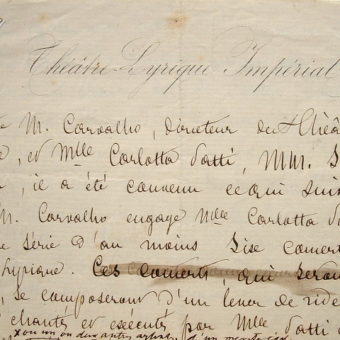 Théâtre-Lyrique Impérial
M. Carvalho, directeur du Théâ
, et Mlle Carlotta Patti, MM.
, il a été convenu ce qui suit
M. Carvalho engage Mlle Carlotta
e série d'au moins Dise concert
Lyrique. Ces concerts, qui seron
, se composeront d'un lever de ride
chantés et exécutés par Mlle Patti
ou un ou deux autres artistes